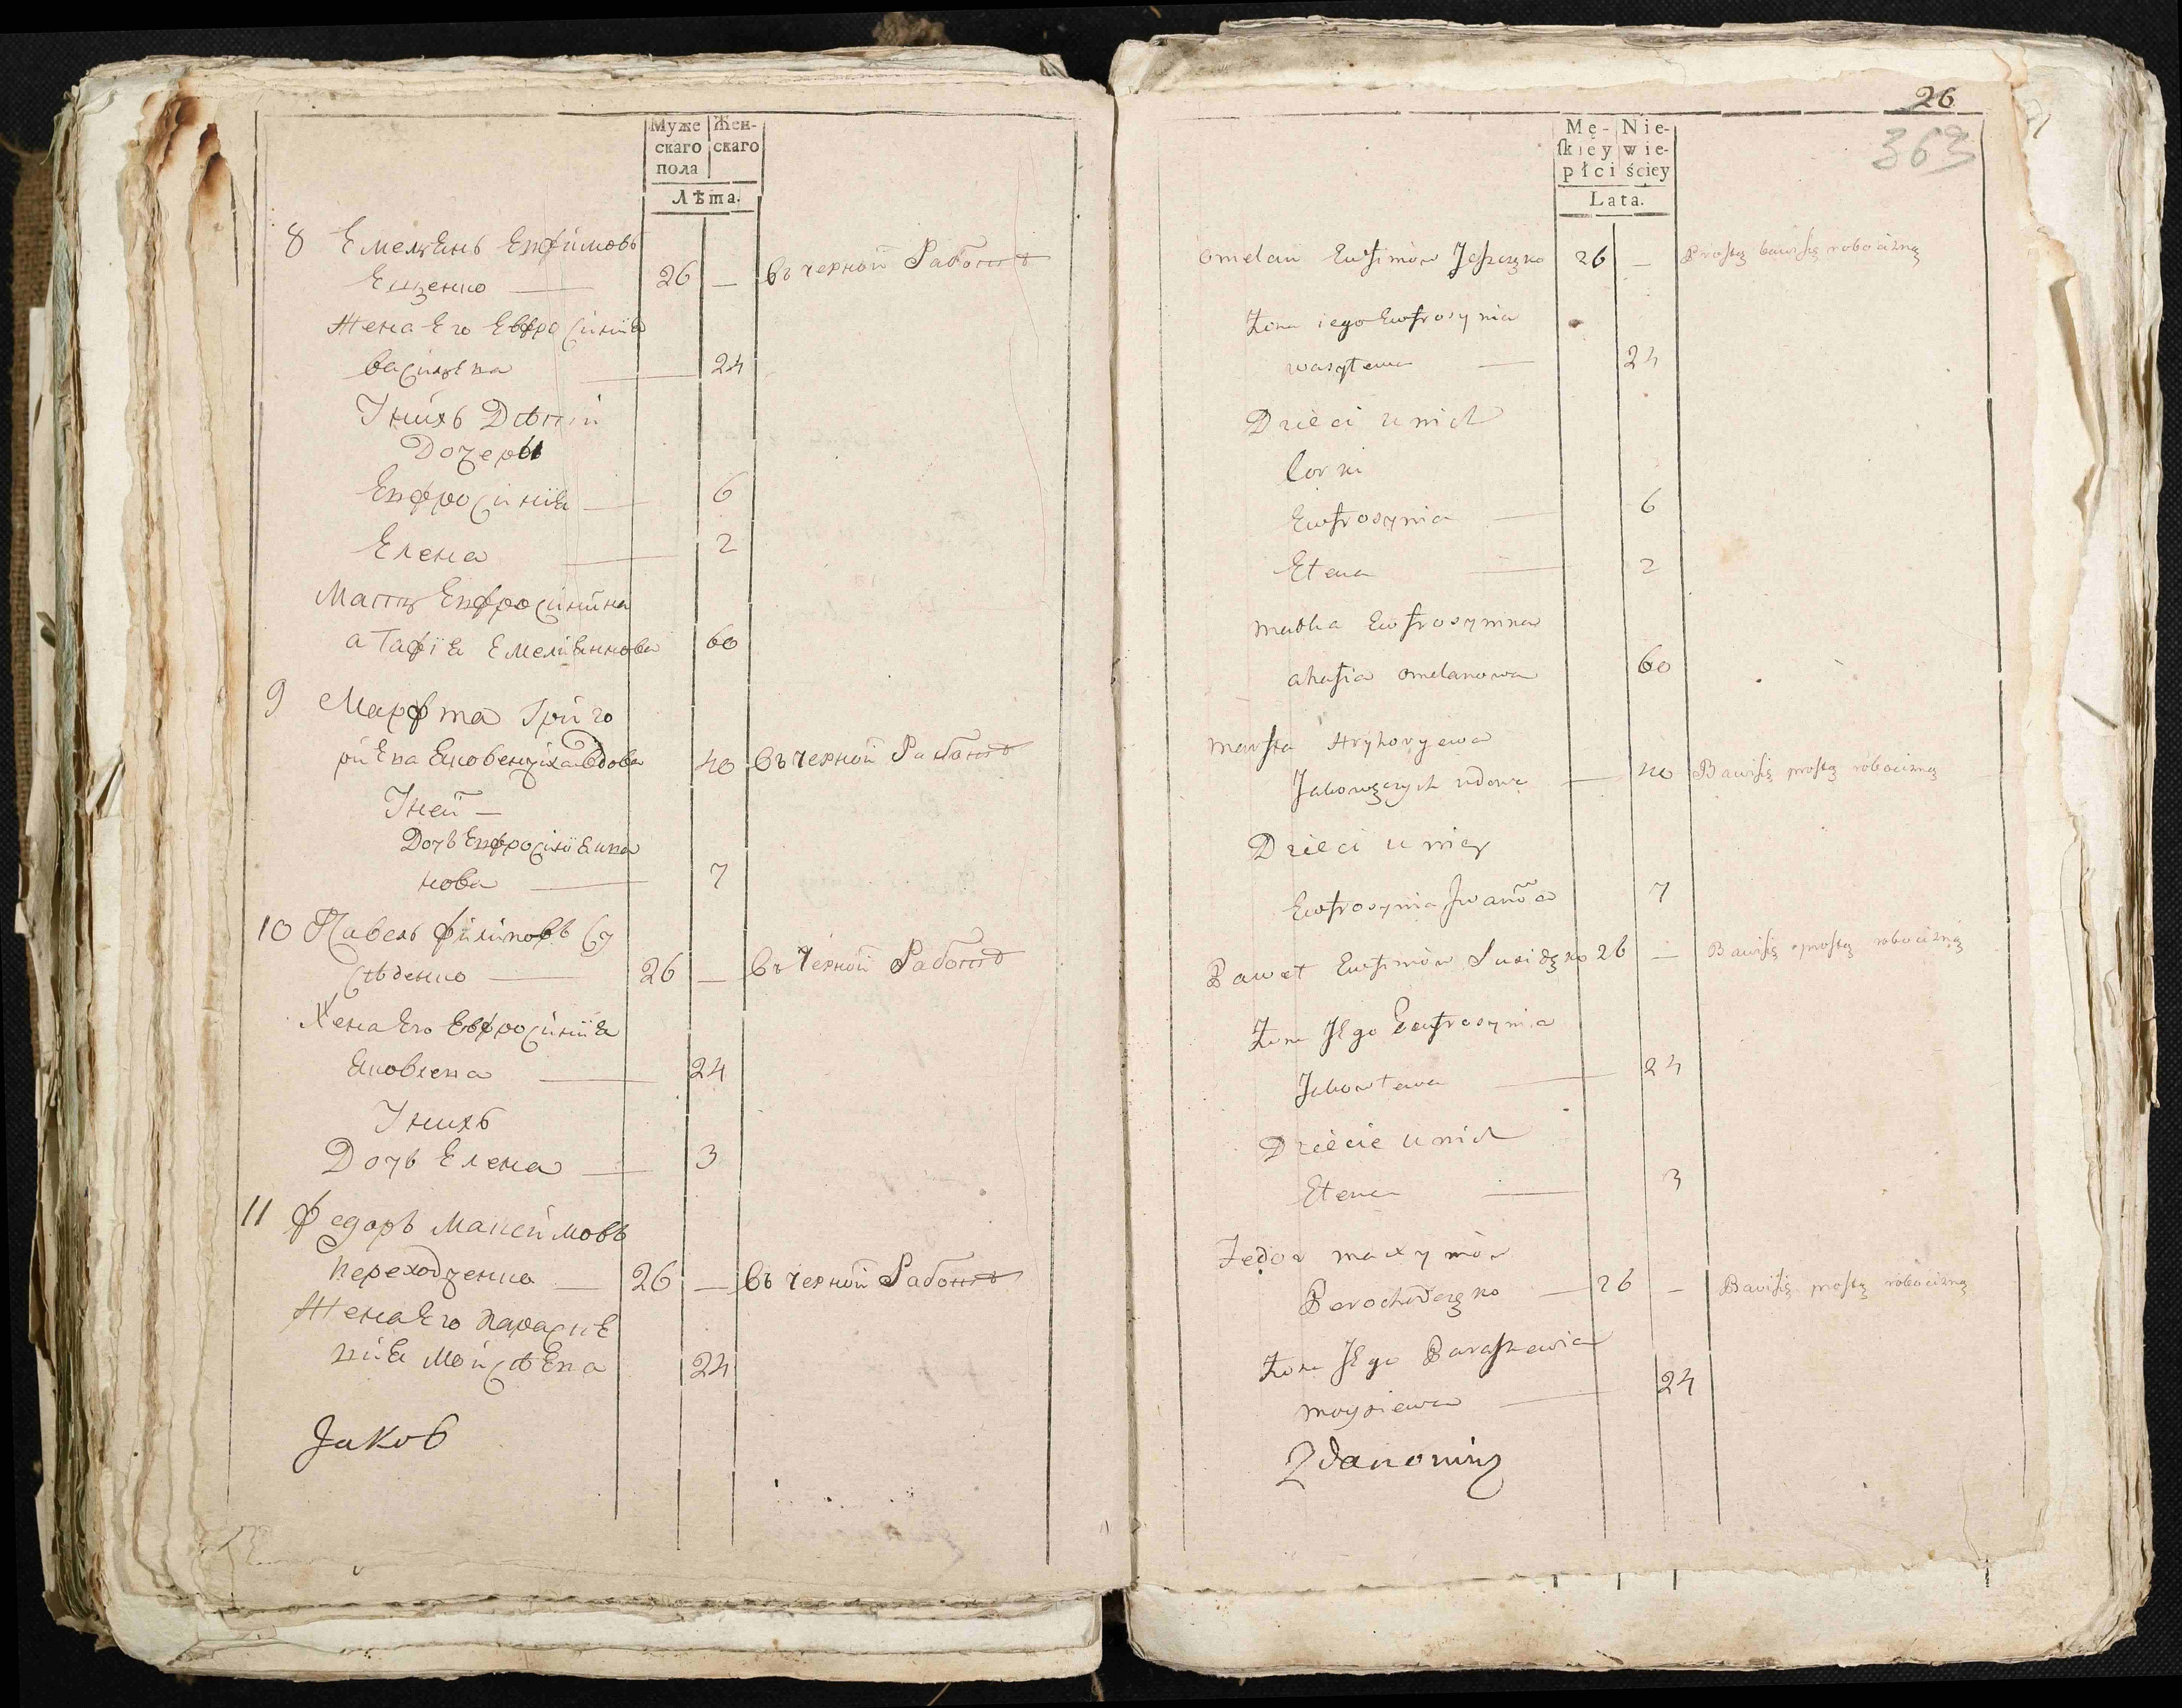 Муже Жен-
скаго скаго
пола
Лѣта.
8 Емельянъ Ευфимовъ
Ещенко — 26 — въ черной Работѣ
Жена Его Евфросиния
васильева — 24
У нихъ Дѣти
Дочеры
Евфросиния — 6
Елена — 2
Мать Евфросинина
агафїя Емелиянова 60
9 Марфта Григо
риева Яковенчиха вдова 40 въ черной Работѣ
У ней —
Дочь Евфросиния ива
нова — 7
10 Павелъ филиповъ Су
сѣденко — 26 — въ черной Работѣ
Жена Его Евфросиния
Яковлева — 24
У нихъ
Дочь Елена — 3
11 федоръ Максимовъ
переходченко — 26 — въ черной Работѣ
Жена Его параске
вия Моисѣева 24
Jakob
26
363
Mę- Nie-
ſkiey wie-
płci ściey
Lata.
omelan Eufimów Jeszczęko 26 — Prostą bawi się robocizną
Żona iego Eufrosynia
wasylewa — 24
Dzieci u nich
Corki
Eufrosynia — 6
Elena — 2
matka Eufrosynina
ahafia omelanowa 60
marfta Hryhoryewa
Jakowęczych udowa — 40 Bawi się prostą robocizną
Dzieci u niey
Eufrosynia Jwanowa 7
Paweł Eufimów Susidęko 26 — Bawi się prostą robocizną
Żona Jego Eeufrosynia
Jakowlewa — 24
Dziecie u nich
Elena — 3
Fedor maxymów
Perochodczęko — 26 — Bawi się prostą robocizną
Żona Jego Paraskewia
moysiewa — 24
Zdanowicz